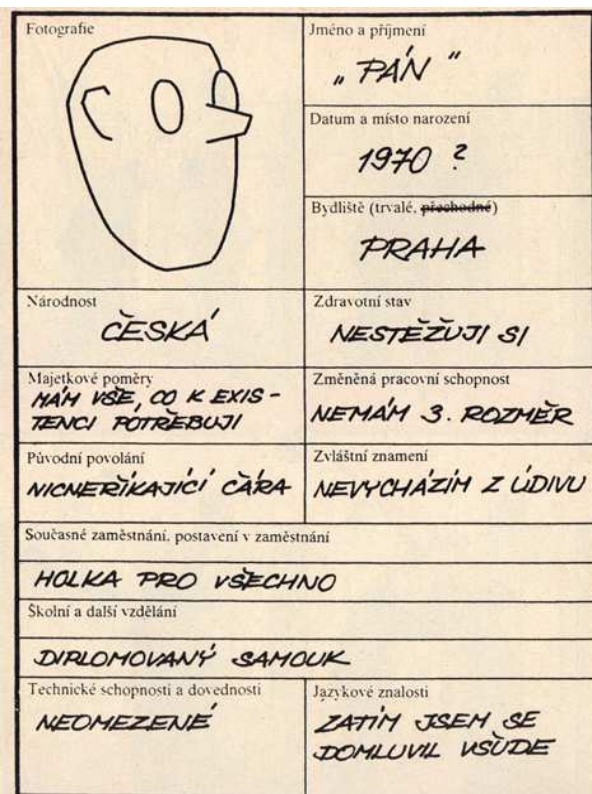 Fotografie
Jméno a příjmení
„PÁN“
Datum a místo narození
1970 ?
Bydliště (trvalé, přechodné)
PRAHA
Národnost
ČESKÁ
Zdravotní stav
NESTĚŽUJI SI
Majetkové poměry
MÁM VŠE, CO K EXIS-
TENCI POTŘEBUJI
Změněná pracovní schopnost
NEMÁM 3. ROZMĚR
Původní povolání
NICNEŘÍKAJÍCÍ ČÁRA
Zvláštní znamení
NEVYCHÁZÍM Z ÚDIVU
Současné zaměstnání, postavení v zaměstnání
HOLKA PRO VŠECHNO
Školní a další vzdělání
DIPLOMOVANÝ SAMOUK
Technické schopnosti a dovednosti
NEOMEZENÉ
Jazykové znalosti
ZATÍM JSEM SE
DOMLUVIL VŠUDE